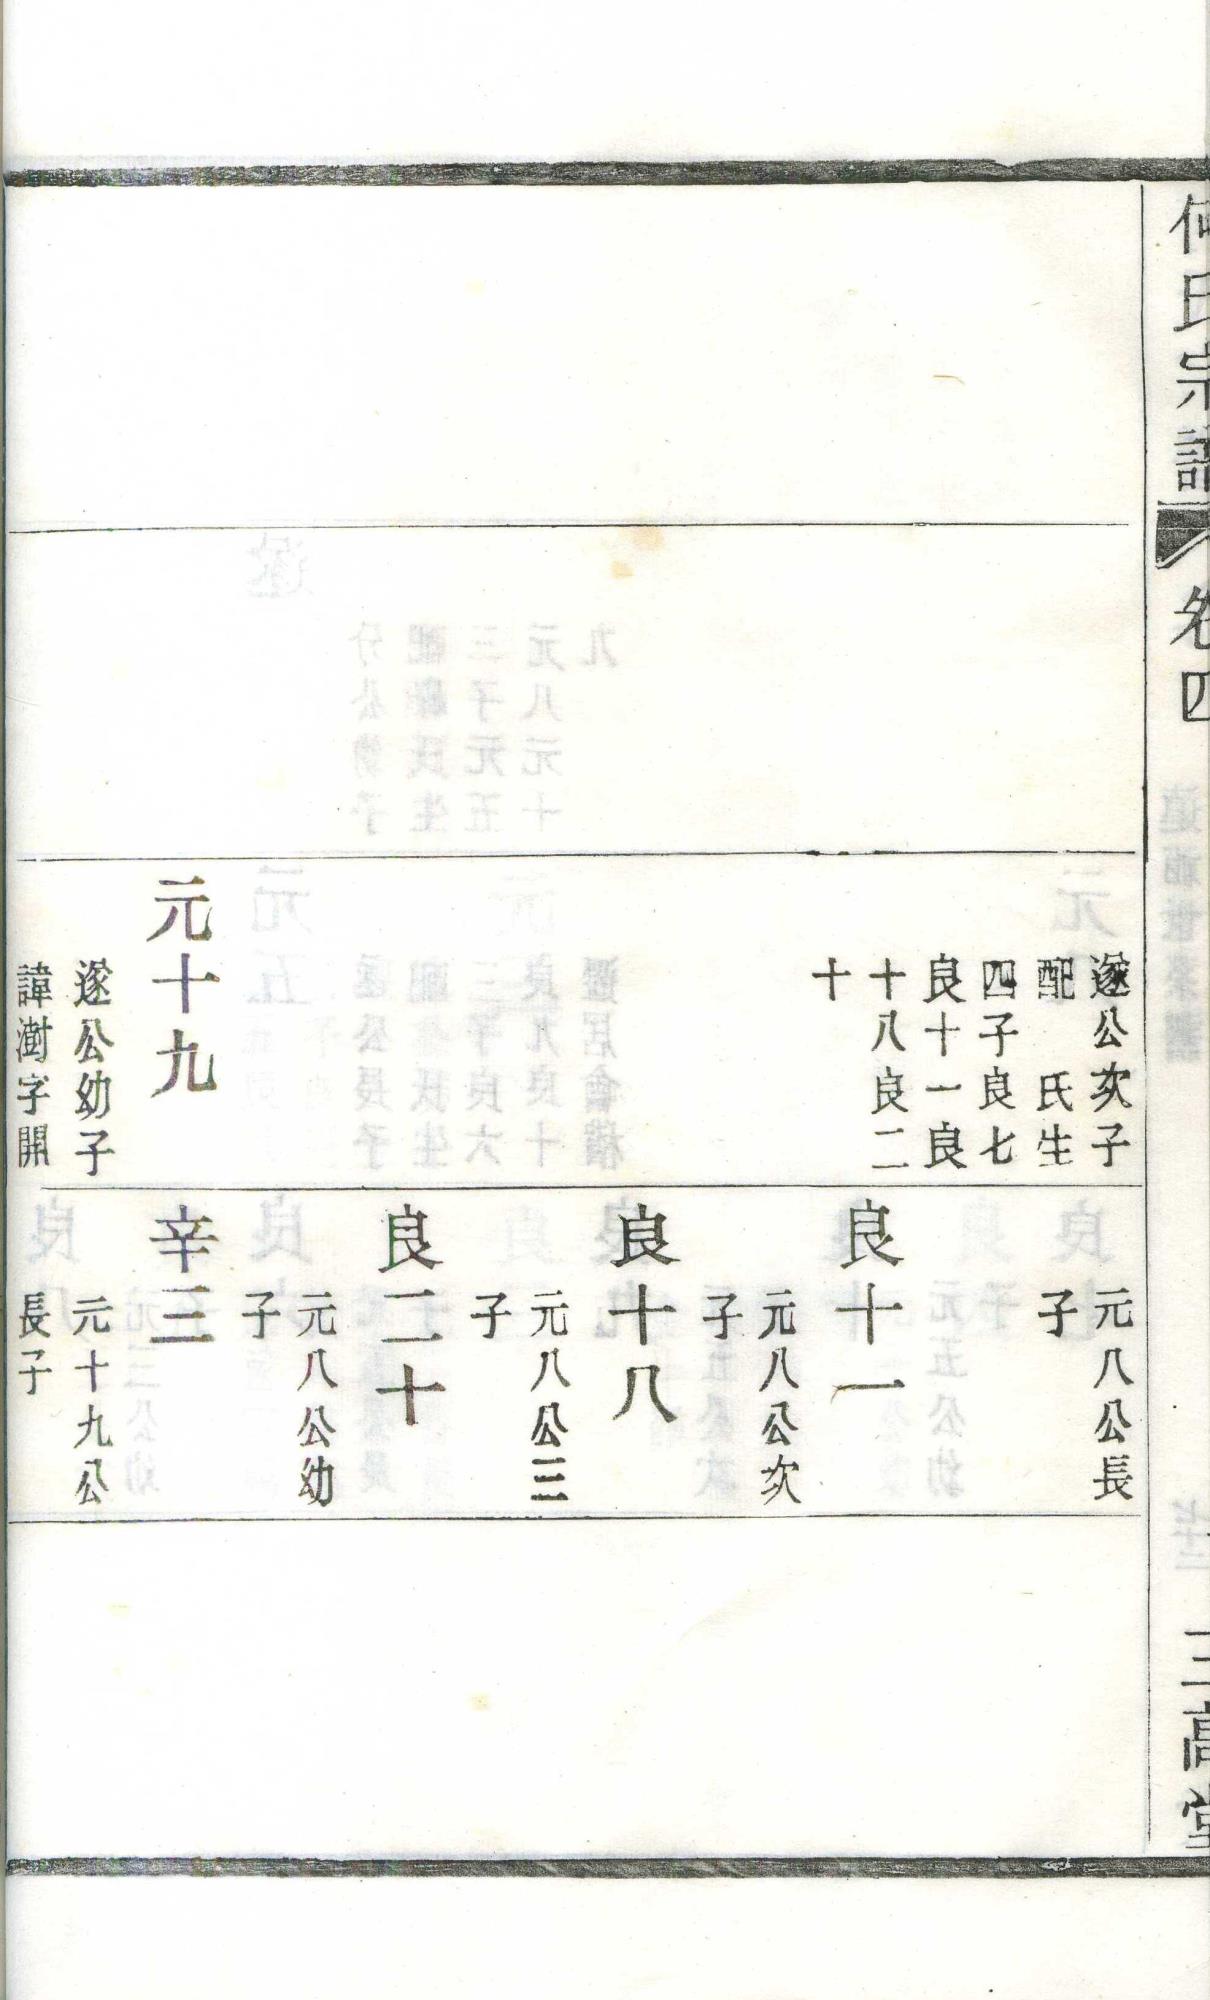 何氏宗譜
卷四
三高堂
遂公次子
配 氏生
四子良七
良十一良
十八良二
十
元十九
遂公幼子
諱澍字開
元八公長
子
良十一
元八公次
子
良十八
元八公三
子
良二十
元八公幼
子
辛三
元十九公
長子